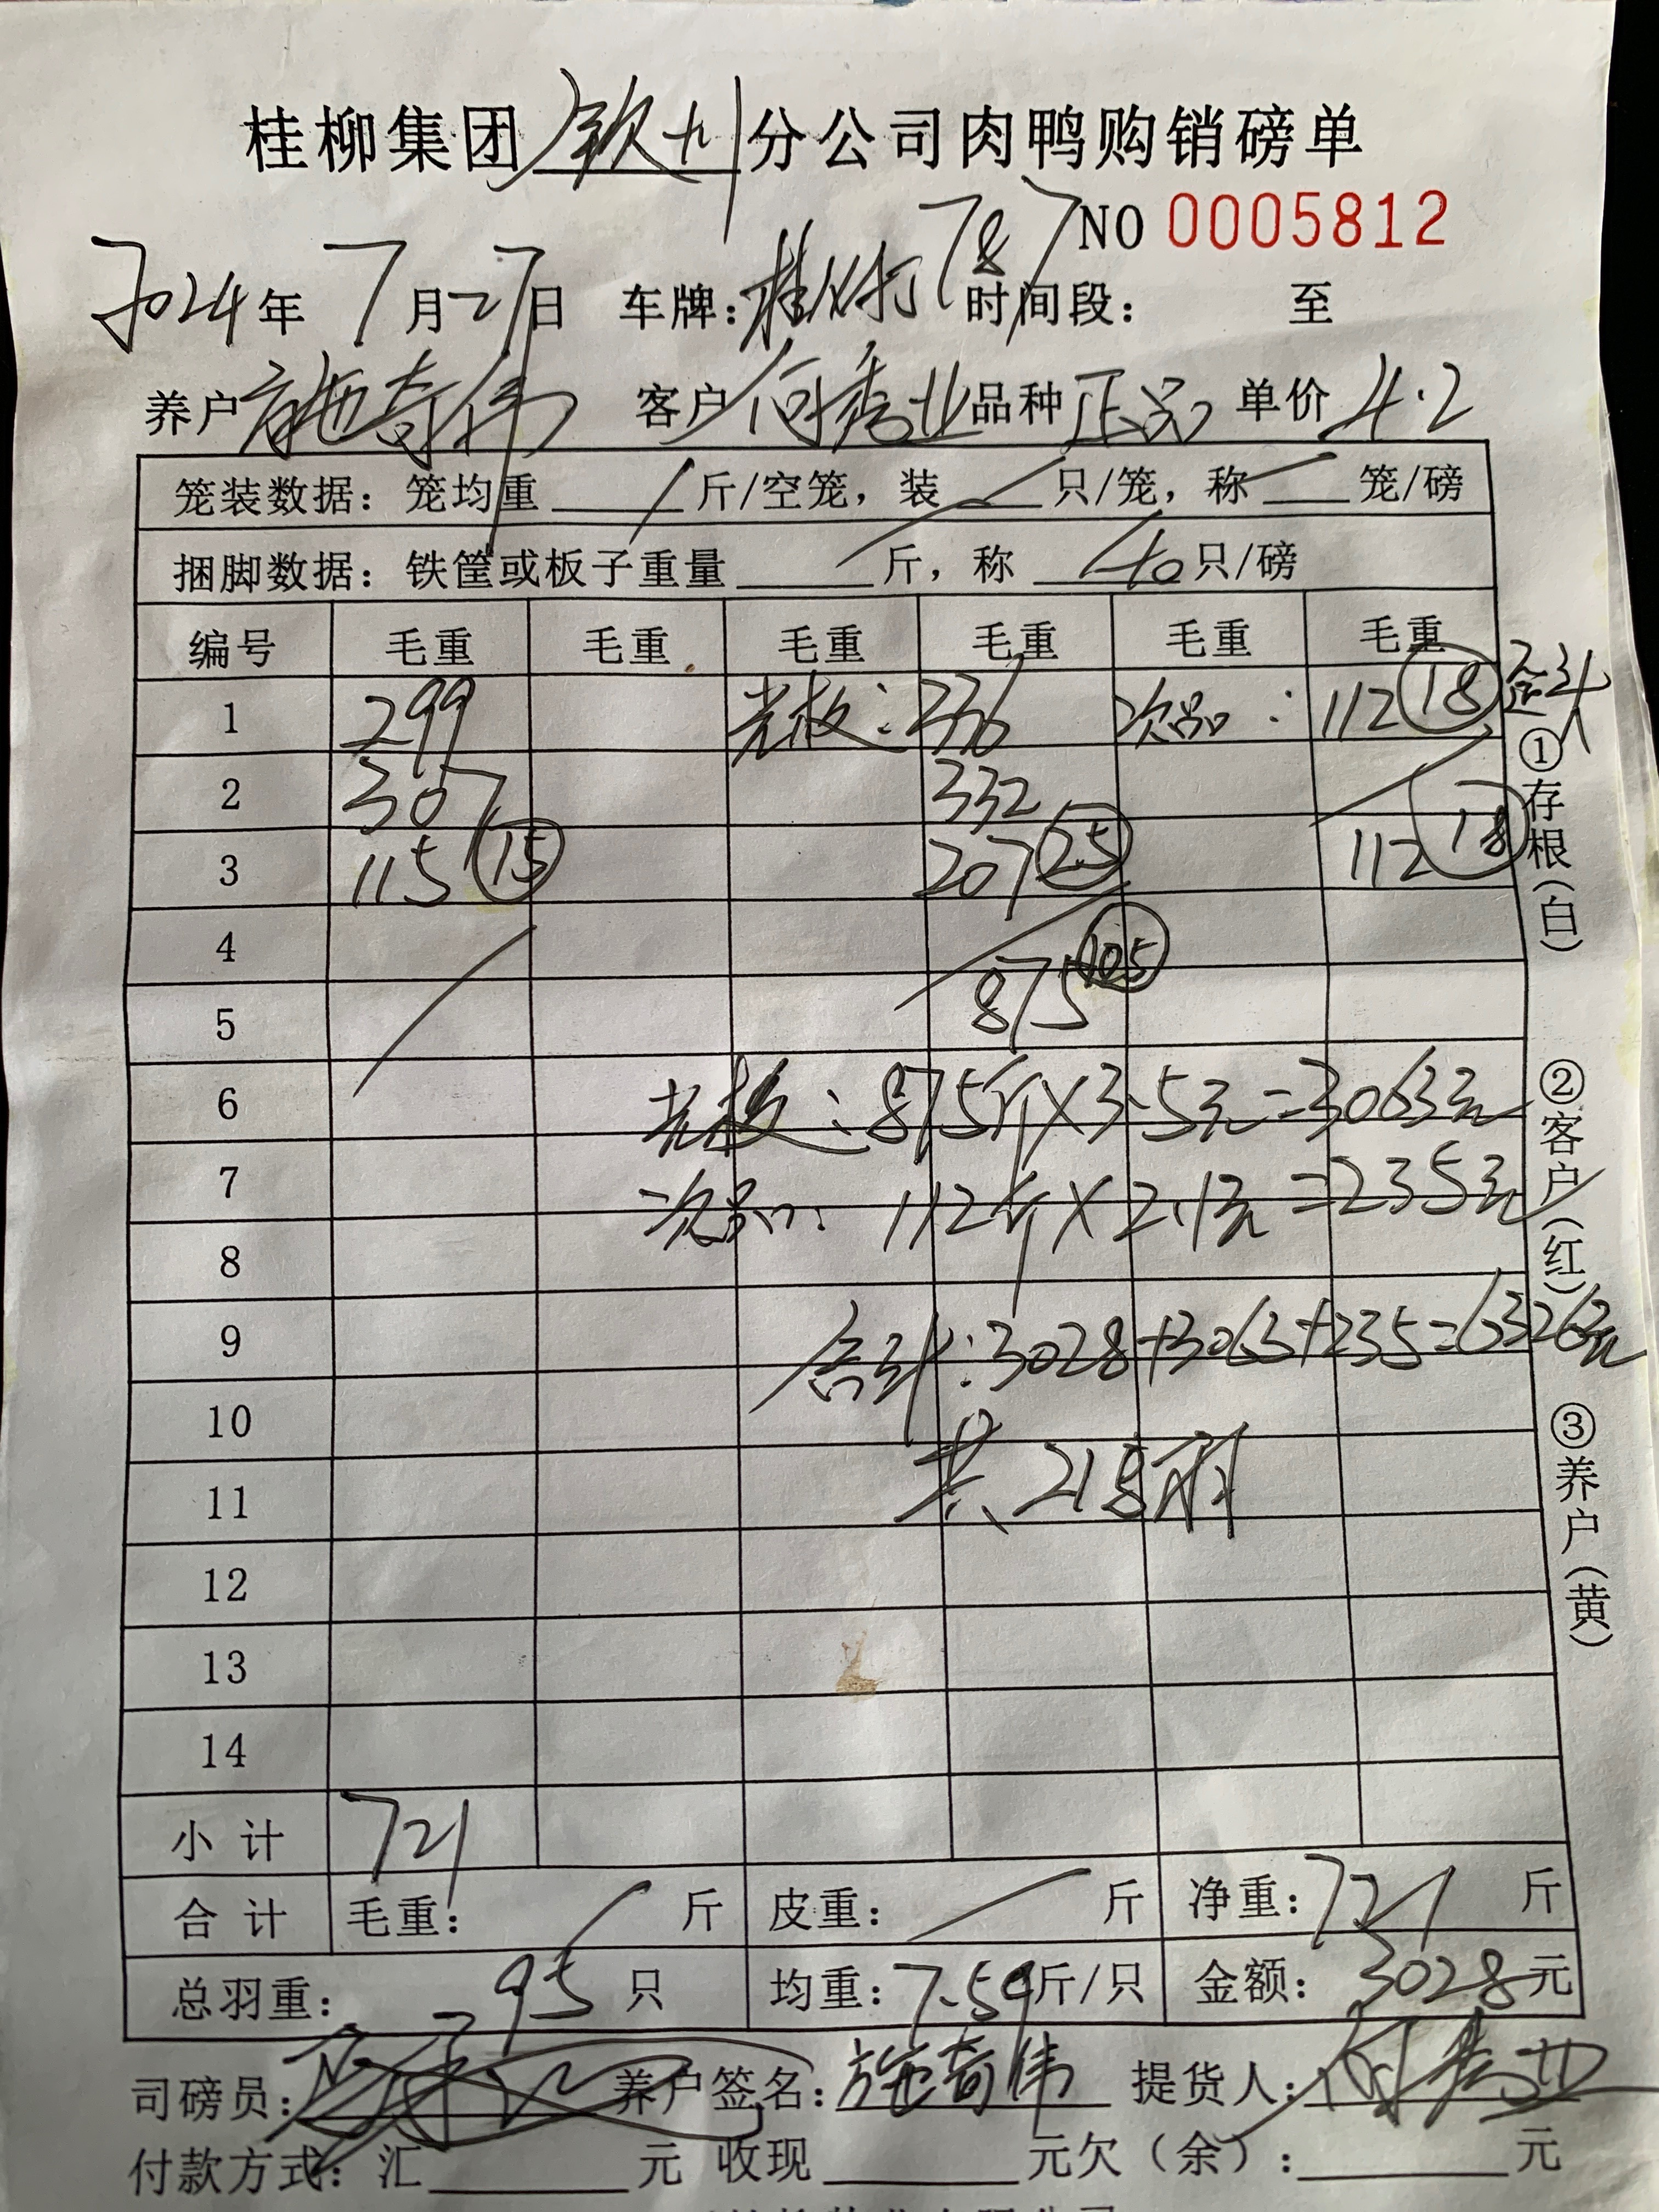 桂柳集团钦州分公司肉鸭购销磅单
NO 0005812
2024年7月27日 车牌：桂 787 时间段： 至
养户施奇伟 客户何秀业 品种正品 单价4.2
笼装数据：笼均重 / 斤/空笼，装 / 只/笼，称 / 笼/磅
捆脚数据：铁筐或板子重量 / 斤，称 40只/磅
编号 毛重 毛重 毛重 毛重 毛重 毛重
1 299 老板：336 次品：112 18
2 307 332
3 115 15 207 25 112 18
4 105
5 875
6 老板：875斤×3.5元=3063元
7 次品：112斤×2.1元=235元
8
9 合计：3028+3063+235=6326元
10
11 共218羽
12
13
14
小计 721
合计 毛重： / 斤 皮重： / 斤 净重：721 斤
总羽重： 95 只 均重：7.59斤/只 金额： 3028元
司磅员： 养户签名：施奇伟 提货人：何秀业
付款方式：汇 元 收现 元欠（余）： 元
①存根（白）
②客户（红）
③养户（黄）